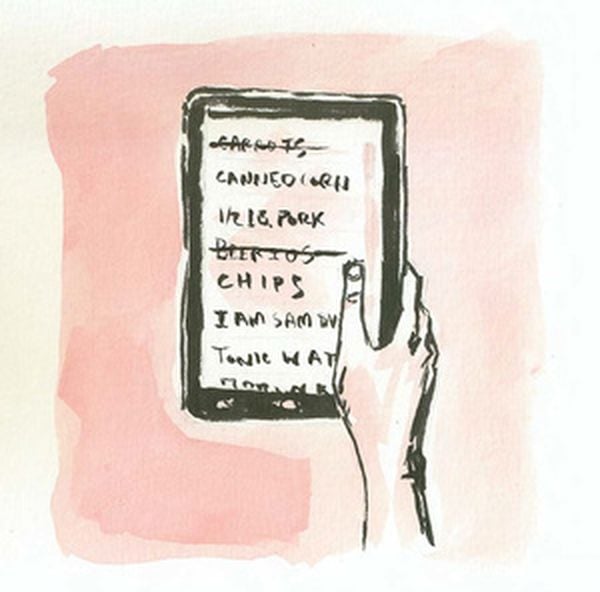 CARROTS
CANNED CORN
1/2 LB. PORK
CHIPS
I AM SAM DV
TONIC WAT